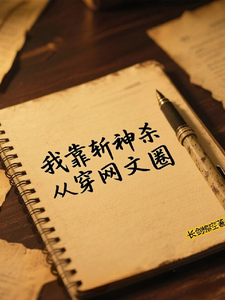 我靠斩神杀
从穿网文圈
长剑